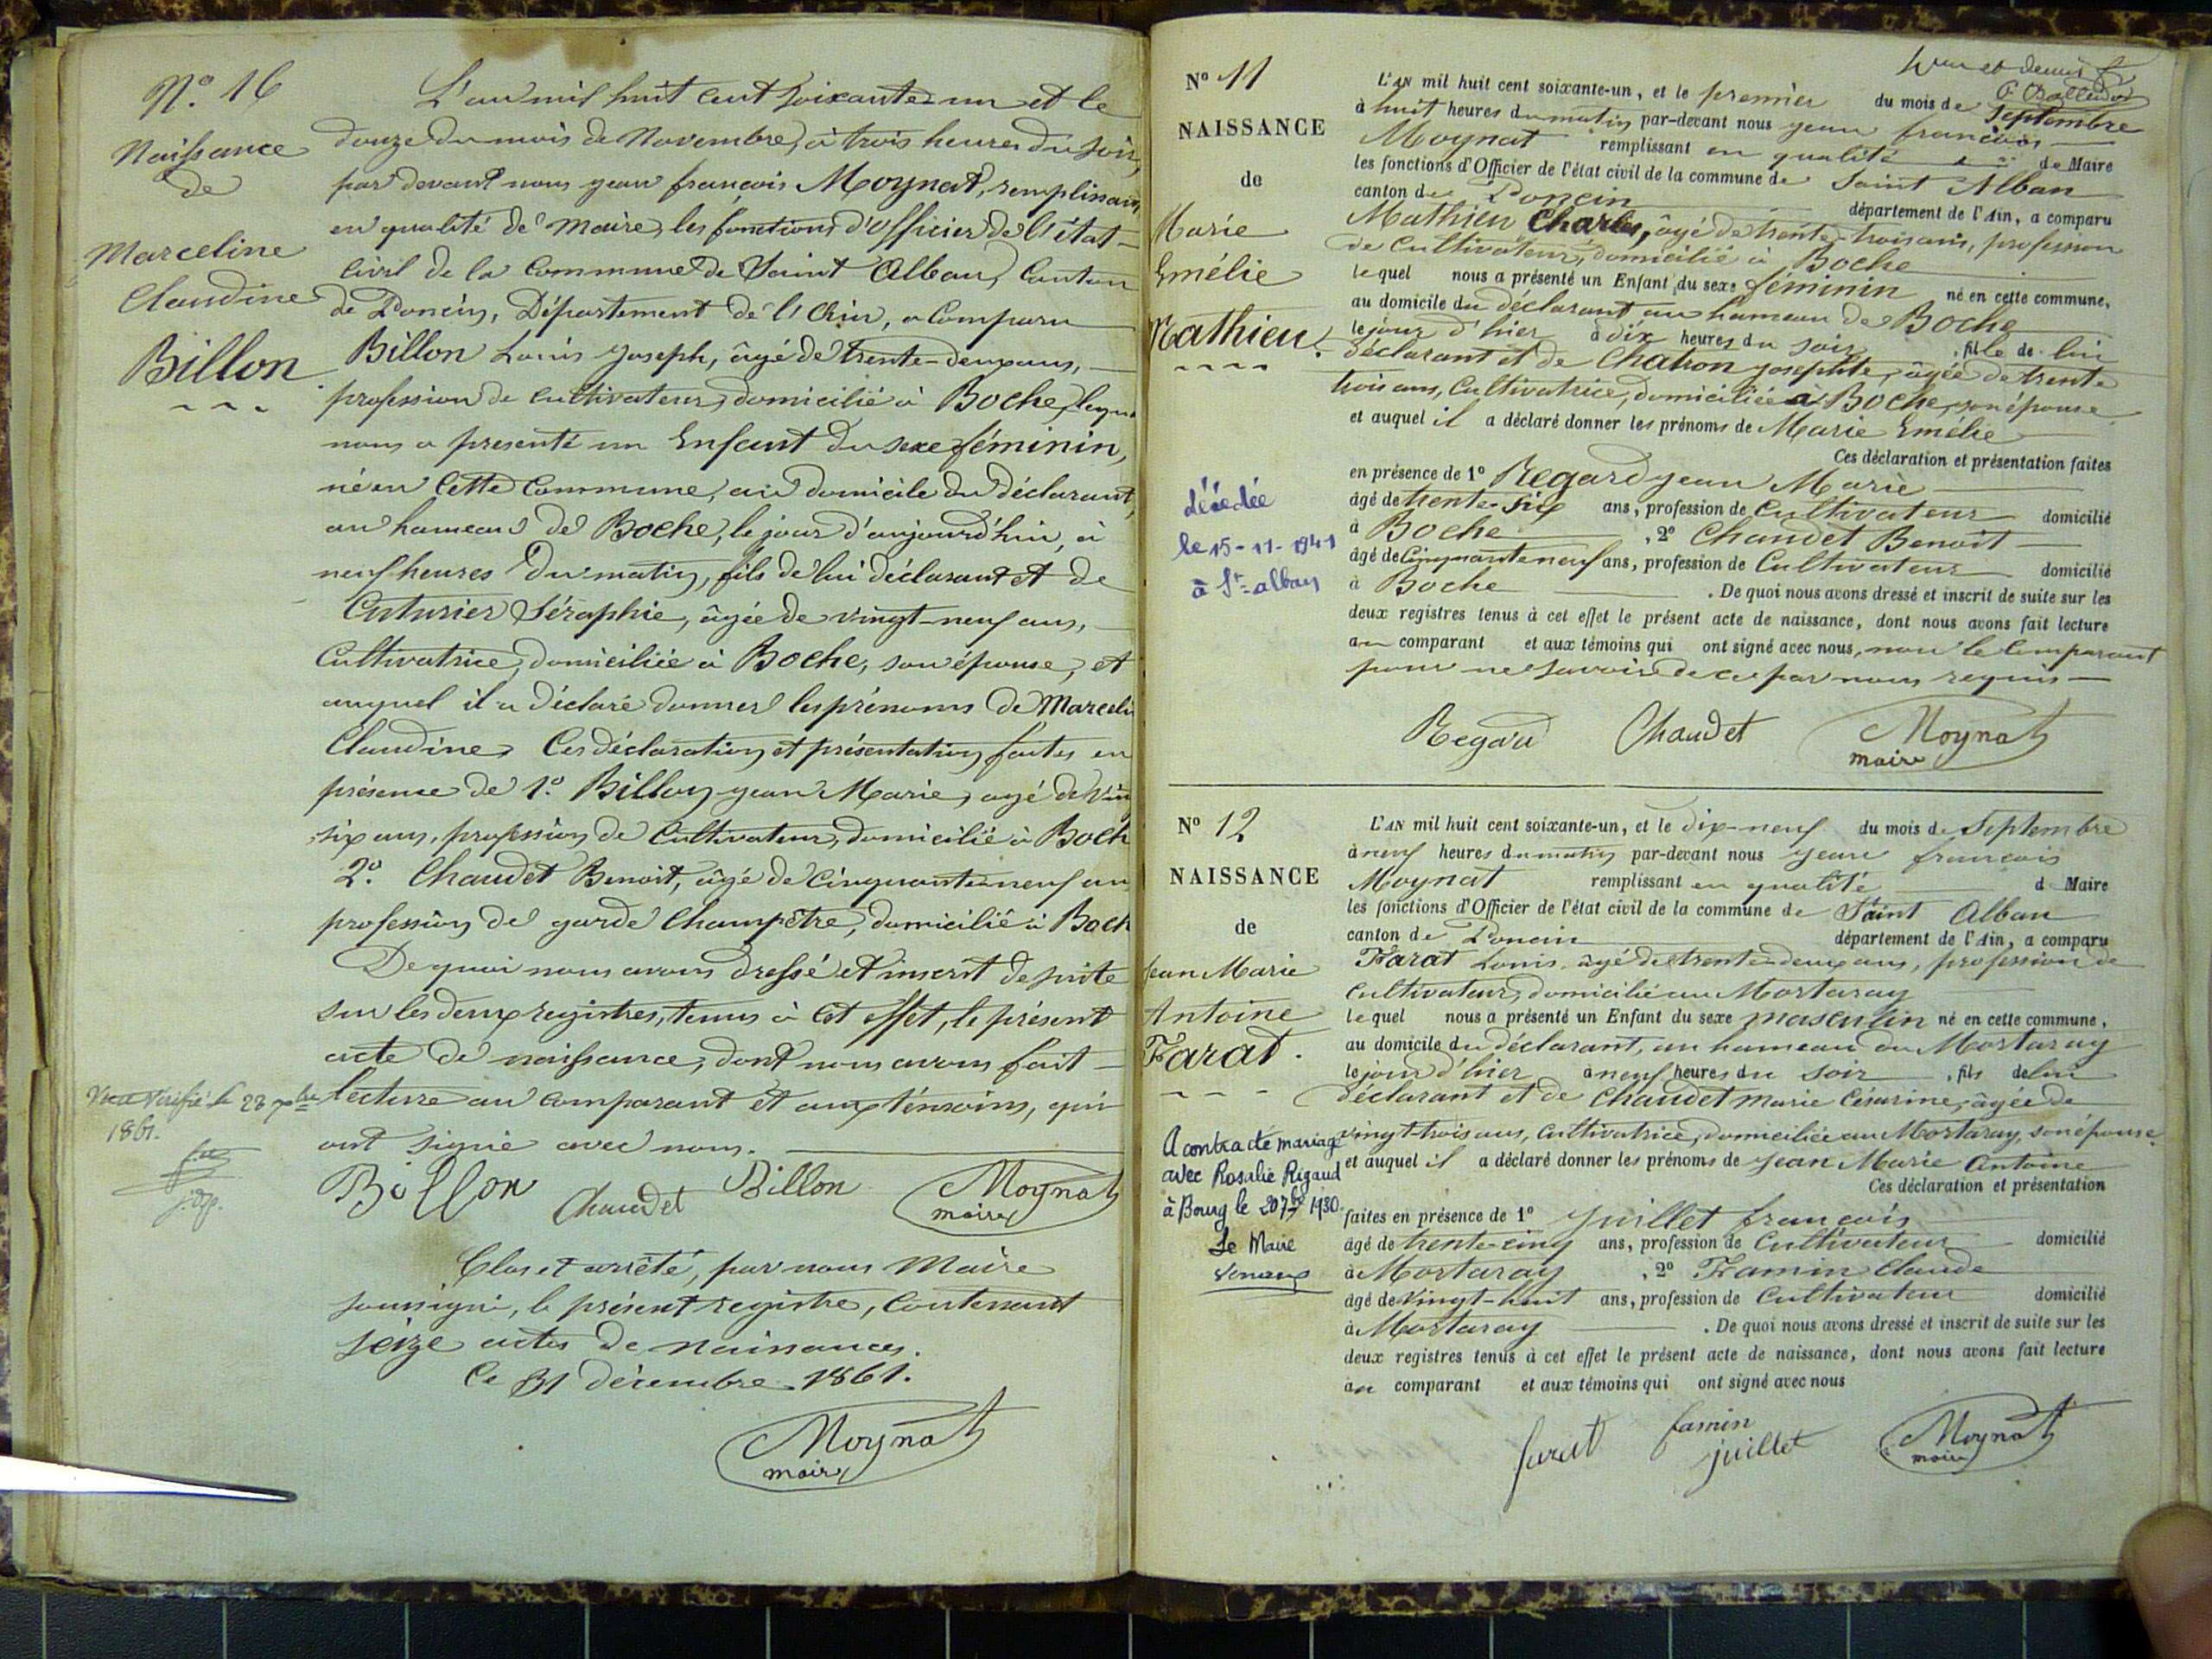 N.o 16
Naissance
de
Marceline
Claudine
Billon
L'an mil huit cent soixante-un et le
douze du mois de Novembre, à trois heures du soir,
par devant nous jean françois Moynat, remplissant
en qualité de Maire, les fonctions d'Officier de l'état-
civil de la Commune de Saint Alban, Canton
de Poncin, Département de l'Ain, a Comparu
Billon Louis Joseph, âgé de trente-deux ans,
profession de cultivateur, domicilié à Boche, lequel
nous a presenté un Enfant du sexe féminin,
né en Cette Commune, au domicile du déclarant,
au hameau de Boche, le jour d'aujourd'hui, à
neuf heures du matin, fils de lui déclarant et de
Cuturier Séraphie, âgée de vingt-neuf ans,
Cultivatrice, domiciliée à Boche, son épouse, et
auquel il a déclaré donner les prénoms de Marceli
Claudine, Ces déclaration et présentation faites en
présence de 1.o Billon jean Marie, agé de vin
six ans, profession de Cultivateur, domicilié à Boch
2.o Chaudet Benoit, âgé de Cinquante-neuf an
profession de garde Champêtre, domicilié à Boch
De quoi nous avons dressé et inscrit de suite
sur les deux registres, tenus à Cet effet, le présent
acte de naissance, dont nous avons fait
lecture au comparant et aux témoins, qui
ont signé avec nous.
Vérifié le 28
1861.
Billon Chaudet Billon Moynat
maire
Clos et arrêté, par nous Maire
soussigné, le présent registre, Contenant
seize actes de naissances.
Ce 31 décembre 1861.
Moynat
maire
No 11
NAISSANCE
de
Marie
Emélie
Mathieu.
décédée
le 15-11-1941
à St-alban
L'AN mil huit cent soixante-un, et le premier du mois de Septembre
à huit heures du matin par-devant nous jean françois
Moynat remplissant en qualité de Maire
les fonctions d'Officier de l'état civil de la commune de Saint Alban
canton de Poncin département de l'Ain, a comparu
Mathieu Charles, âgé de trente-trois ans, profession
de Cultivateur, domicilié à Boche
lequel nous a présenté un Enfant du sexe féminin né en cette commune,
au domicile du déclarant au hameau de Boche
le jour d'hier à dix heures du soir, fille de lui
déclarant et de Chatron josephte, âgée de trente
trois ans, Cultivatrice, domiciliée à Boche, son épouse
et auquel il a déclaré donner les prénoms de Marie Emélie
Ces déclaration et présentation faites
en présence de 1o Regard jean Marie
âgé de trente-six ans, profession de Cultivateur domicilié
à Boche, 2o Chaudet Benoit
âgé de Cinquante neuf ans, profession de Cultivateur domicilié
à Boche. De quoi nous avons dressé et inscrit de suite sur les
deux registres tenus à cet effet le présent acte de naissance, dont nous avons fait lecture
au comparant et aux témoins qui ont signé avec nous, non le Comparant
pour ne savoir de ce par nous requis
Regard Chaudet Moynat
maire
No 12
NAISSANCE
de
Jean Marie
Antoine
Farat.
A contracté mariage
avec Rosalie Rigaud
à Bourg le 20 7bre 1930.
Le Maire
L'AN mil huit cent soixante-un, et le dix-neuf du mois de Septembre
à neuf heures du matin par-devant nous jean françois
Moynat remplissant en qualité d Maire
les fonctions d'Officier de l'état civil de la commune de Saint Alban
canton de Poncin département de l'Ain, a comparu
Farat Louis âgé de trente-deux ans, profession de
Cultivateur, domicilié au Mortaray
lequel nous a présenté un Enfant du sexe masculin né en cette commune,
au domicile du déclarant, au hameau du Mortaray
le jour d'hier à neuf heures du soir, fils de lui
déclarant et de Chaudet marie Césarine, âgée de
vingt-trois ans, Cultivatrice, domiciliée au Mortaray, son épouse
et auquel il a déclaré donner les prénoms de Jean Marie Antoine
Ces déclaration et présentation
faites en présence de 1o juillet françois
âgé de trente-cinq ans, profession de Cultivateur domicilié
à Mortaray, 2o Framin Claude
âgé de vingt-huit ans, profession de Cultivateur domicilié
à Mortaray. De quoi nous avons dressé et inscrit de suite sur les
deux registres tenus à cet effet le présent acte de naissance, dont nous avons fait lecture
au comparant et aux témoins qui ont signé avec nous
farat famin juillet Moynat
maire